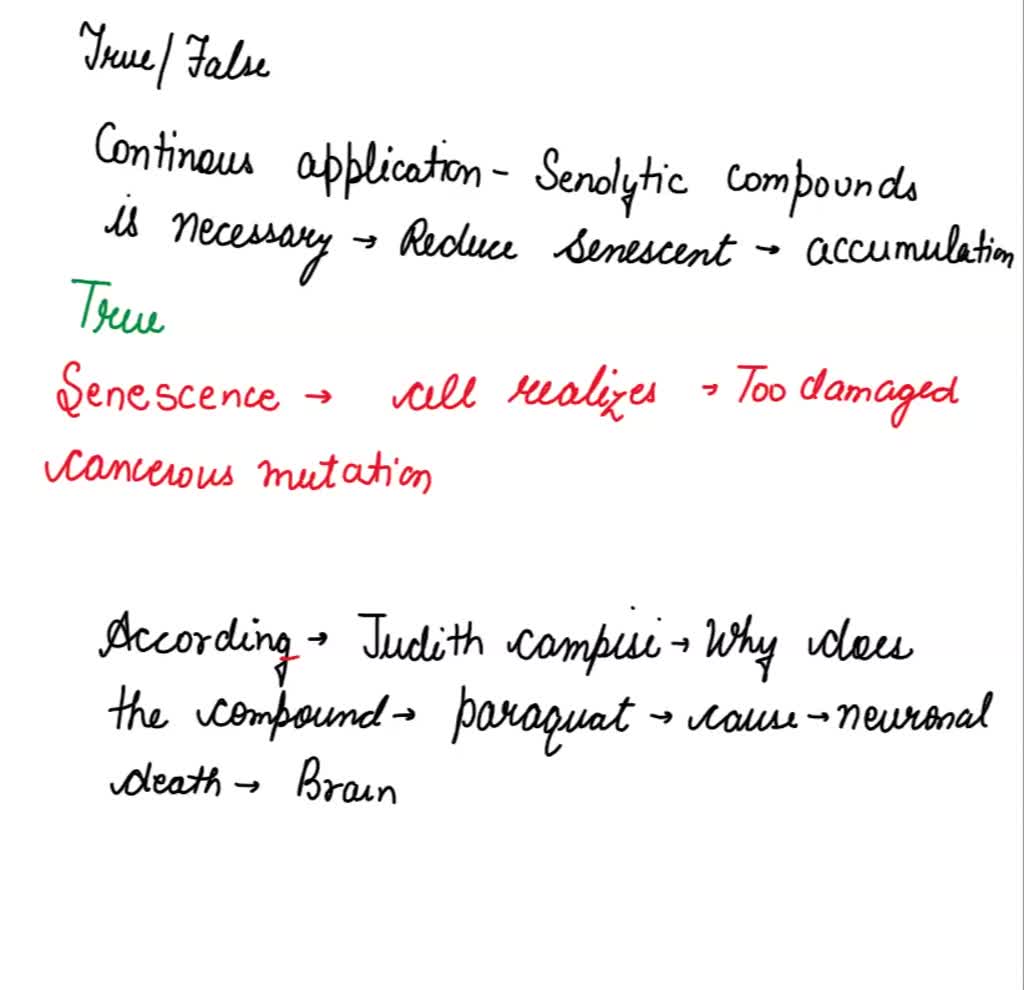 True/False
Continous application - Senolytic compounds
is necessary → Reduce senescent → accumulation
True
Senescence → cell realizes → Too damaged
cancerous mutation
According → Judith campisi → Why does
the compound → paraquat → cause → neuronal
death → Brain